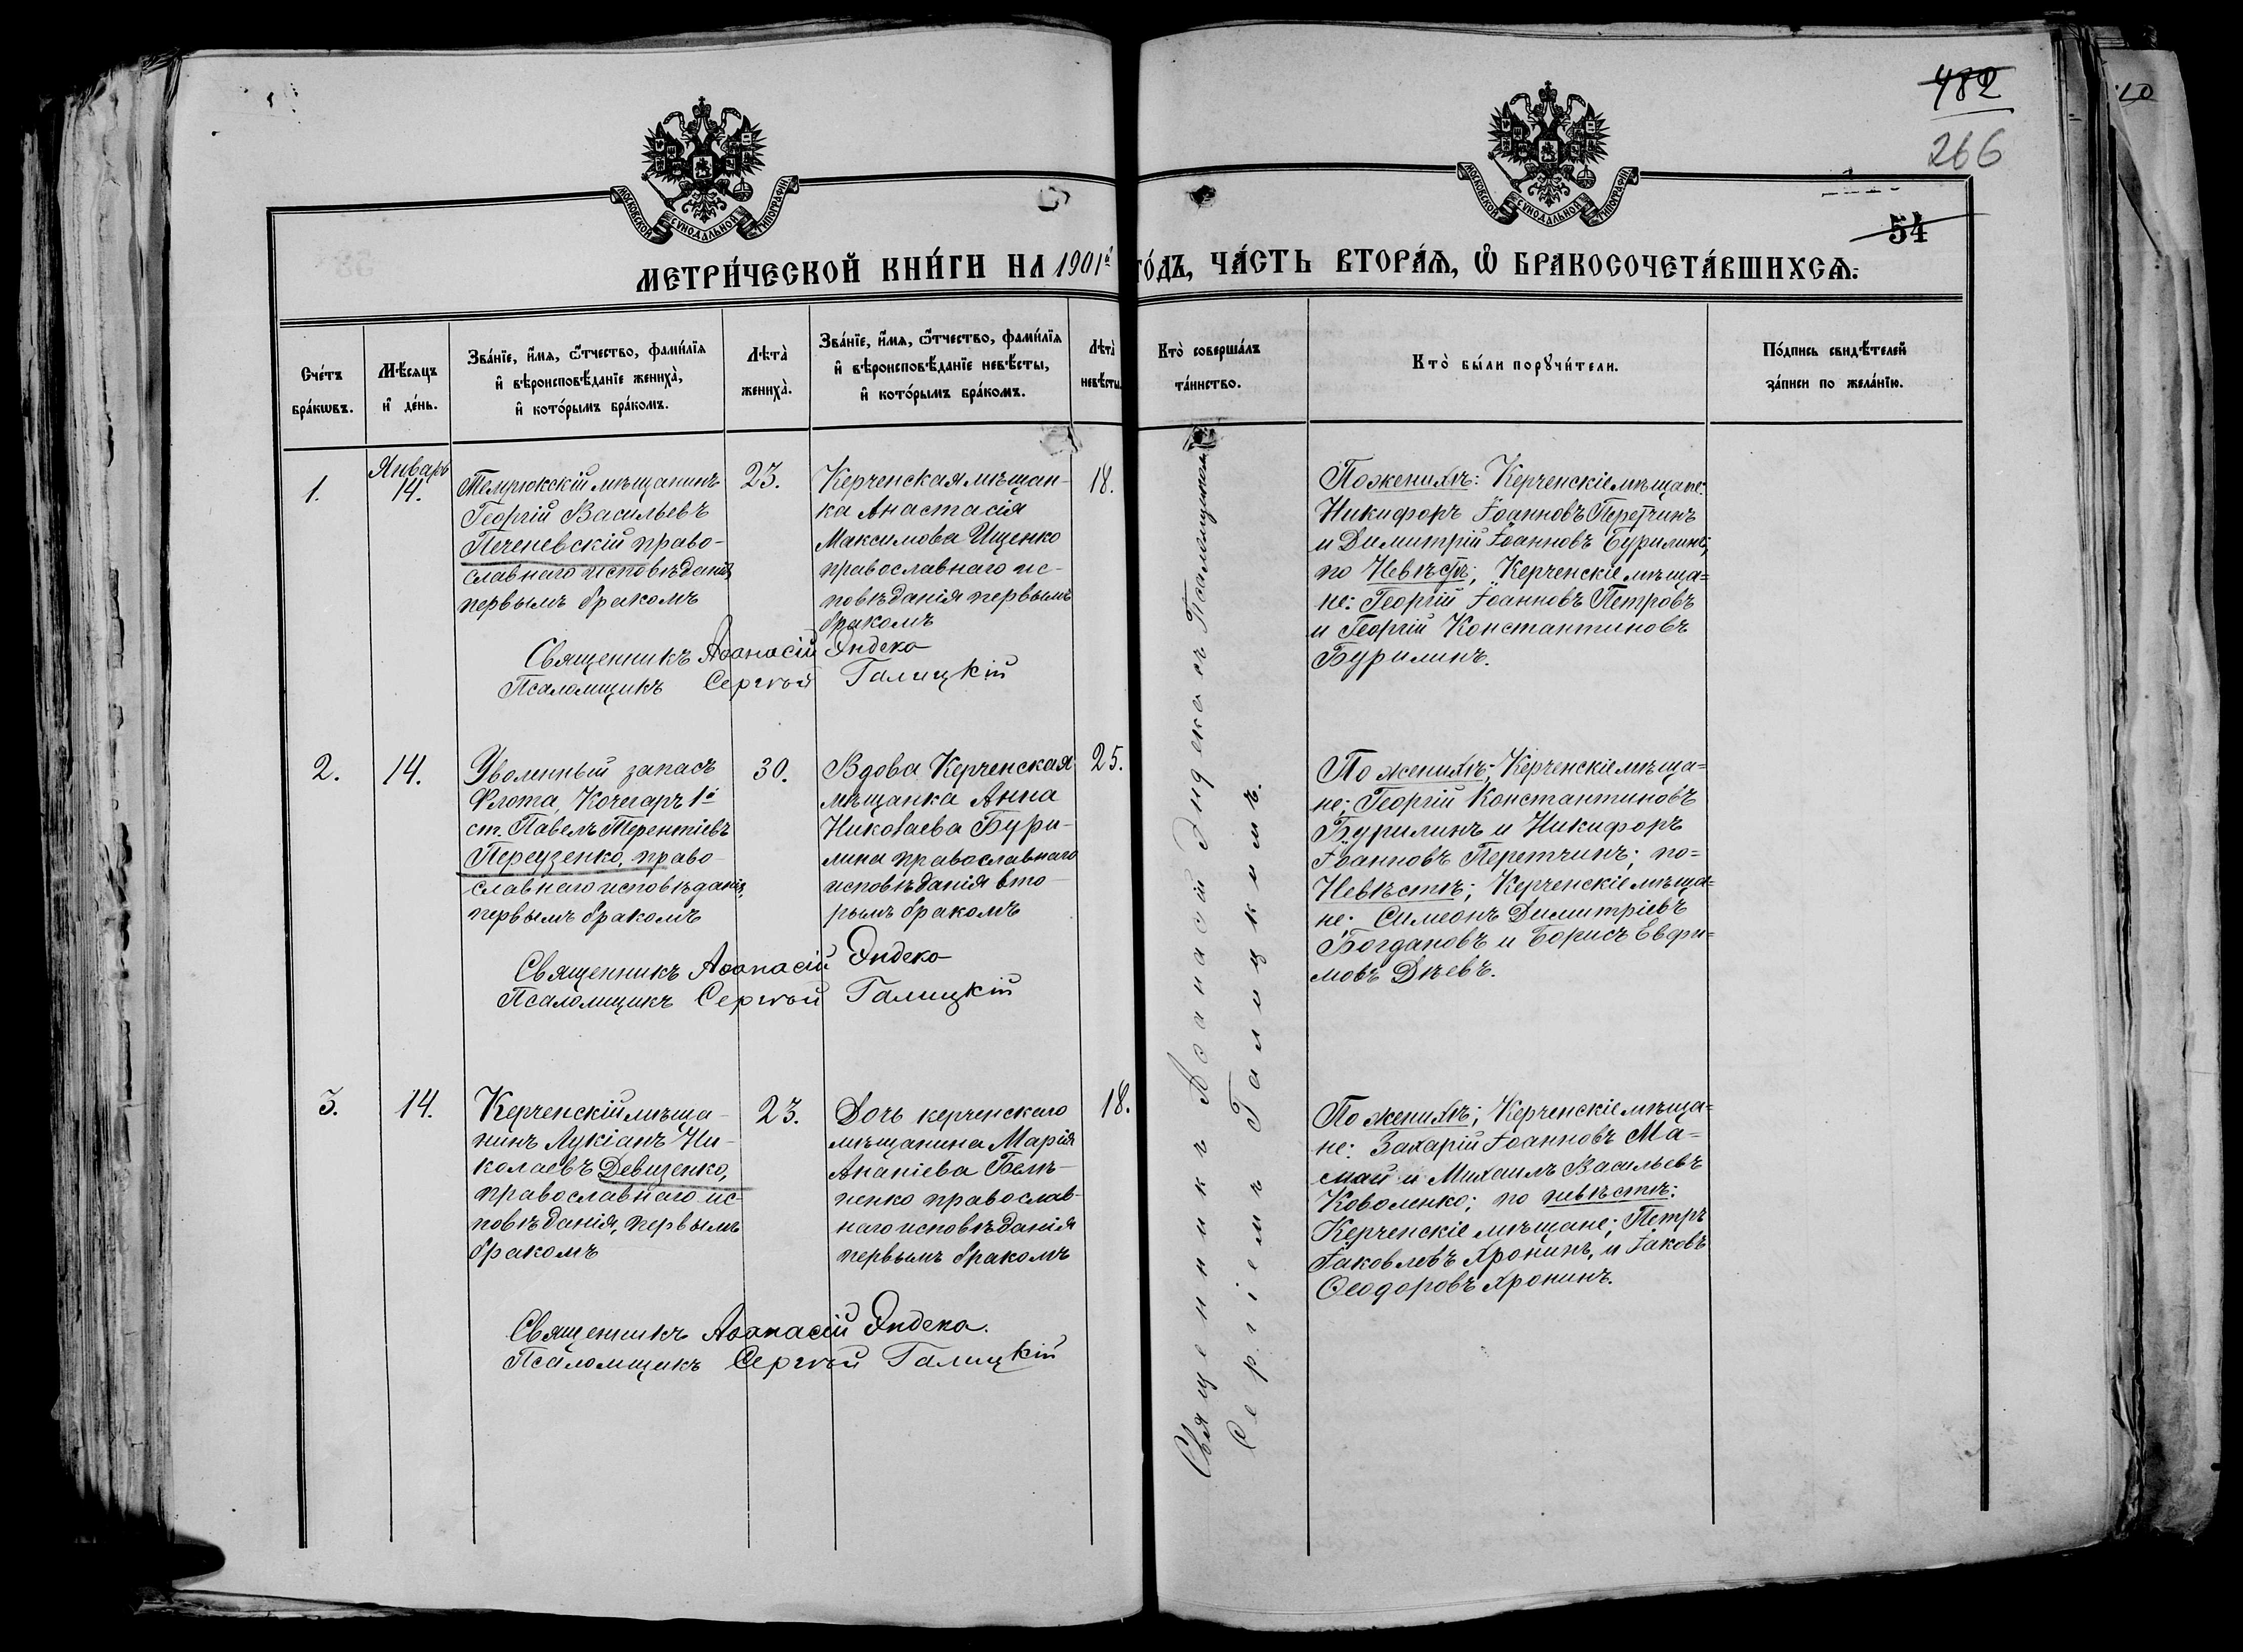 482
266
54
МОСКОВСКОЙ СѴНОДАЛЬНОЙ ТИПОГРАФІИ
МОСКОВСКОЙ СѴНОДАЛЬНОЙ ТИПОГРАФІИ
МЕТРИ́ЧЕСКОЙ КНИ́ГИ НА 1901й ГО́ДЪ, ЧА́СТЬ ВТОРА́Ѧ, Ѽ БРАКОСОЧЕТА́ВШИХСѦ:
Сче́тъ
бра́кѡвъ.
Мѣ́сяцъ
и҆ де́нь.
Зва́нїе, и҆́мѧ, ѻ҆́тчество, фами́лїѧ
и҆ вѣроисповѣ́данїе жениха̀,
и҆ кото́рымъ бра́комъ.
Лѣта̀
жениха̀.
Зва́нїе, и҆́мѧ, ѻ҆́тчество, фами́лїѧ
и҆ вѣроисповѣ́данїе невѣ́сты,
и҆ кото́рымъ бра́комъ.
Лѣта̀
невѣ́сты.
Кто̀ соверша́лъ
та́инство.
Кто̀ бы́ли порꙋчи́тели.
По́дпись свидѣ́телей
за́писи по жела́нїю.
1.
Январь
14.
Темрюкскій мѣщанинъ
Георгій Васильевъ
Печеневскій право-
славнаго исповѣданія,
первымъ бракомъ
23.
Керченская мѣщан-
ка Анастасія
Максимова Ищенко
православнаго ис-
повѣданія первымъ
бракомъ
18.
Священникъ Аѳанасій Эндека
Псаломщикъ Сергѣй Галицкій
По женихѣ: Керченскіе мѣщане:
Никифоръ Іоанновъ Перетчинъ
и Димитрій Іоанновъ Бурилинъ;
по Невѣстѣ; Керченскіе мѣща=
не: Георгій Іоанновъ Петровъ
и Георгій Константиновъ
Бурилинъ.
2.
14.
Уволенный запасъ
Флота, Кочегаръ 1й
ст. Павелъ Терентіевъ
Переузенко, право-
славнаго исповѣданія,
первымъ бракомъ
30.
Вдова Керченская
мѣщанка Анна
Николаева Бури-
лина православнаго
исповѣданія вто-
рымъ бракомъ
25.
Священникъ Аѳанасій Эндека
Псаломщикъ Сергѣй Галицкій
По женихѣ; Керченскіе мѣща=
не; Георгій Константиновъ
Бурилинъ и Никифоръ
Іоанновъ Перетчинъ; по=
Невѣстѣ; Керченскіе мѣща=
не: Симеонъ Димитріевъ
Богдановъ и Борисъ Евфи=
мовъ Дѣевъ.
3.
14.
Керченскій мѣща-
нинъ Лукіанъ Ни-
колаевъ Девизенко,
православнаго ис-
повѣданія, первымъ
бракомъ
23.
Дочь керченскаго
мѣщанина Марія
Ананіева
православ-
наго исповѣданія
первымъ бракомъ
18.
Священникъ Аѳанасій Эндека.
Псаломщикъ Сергѣй Галицкій
По женихѣ; Керченскіе мѣща=
не: Захарій Іоанновъ Ма=
май и Михаилъ Васильевъ
Коваленко; по невѣстѣ:
Керченскіе мѣщане; Петръ
Іаковлевъ Хронинъ, и Іаковъ
Ѳеодоровъ Хронинъ.
Священникъ Аѳанасій Эндека съ Псаломщикомъ
Сергіемъ Галицкимъ.